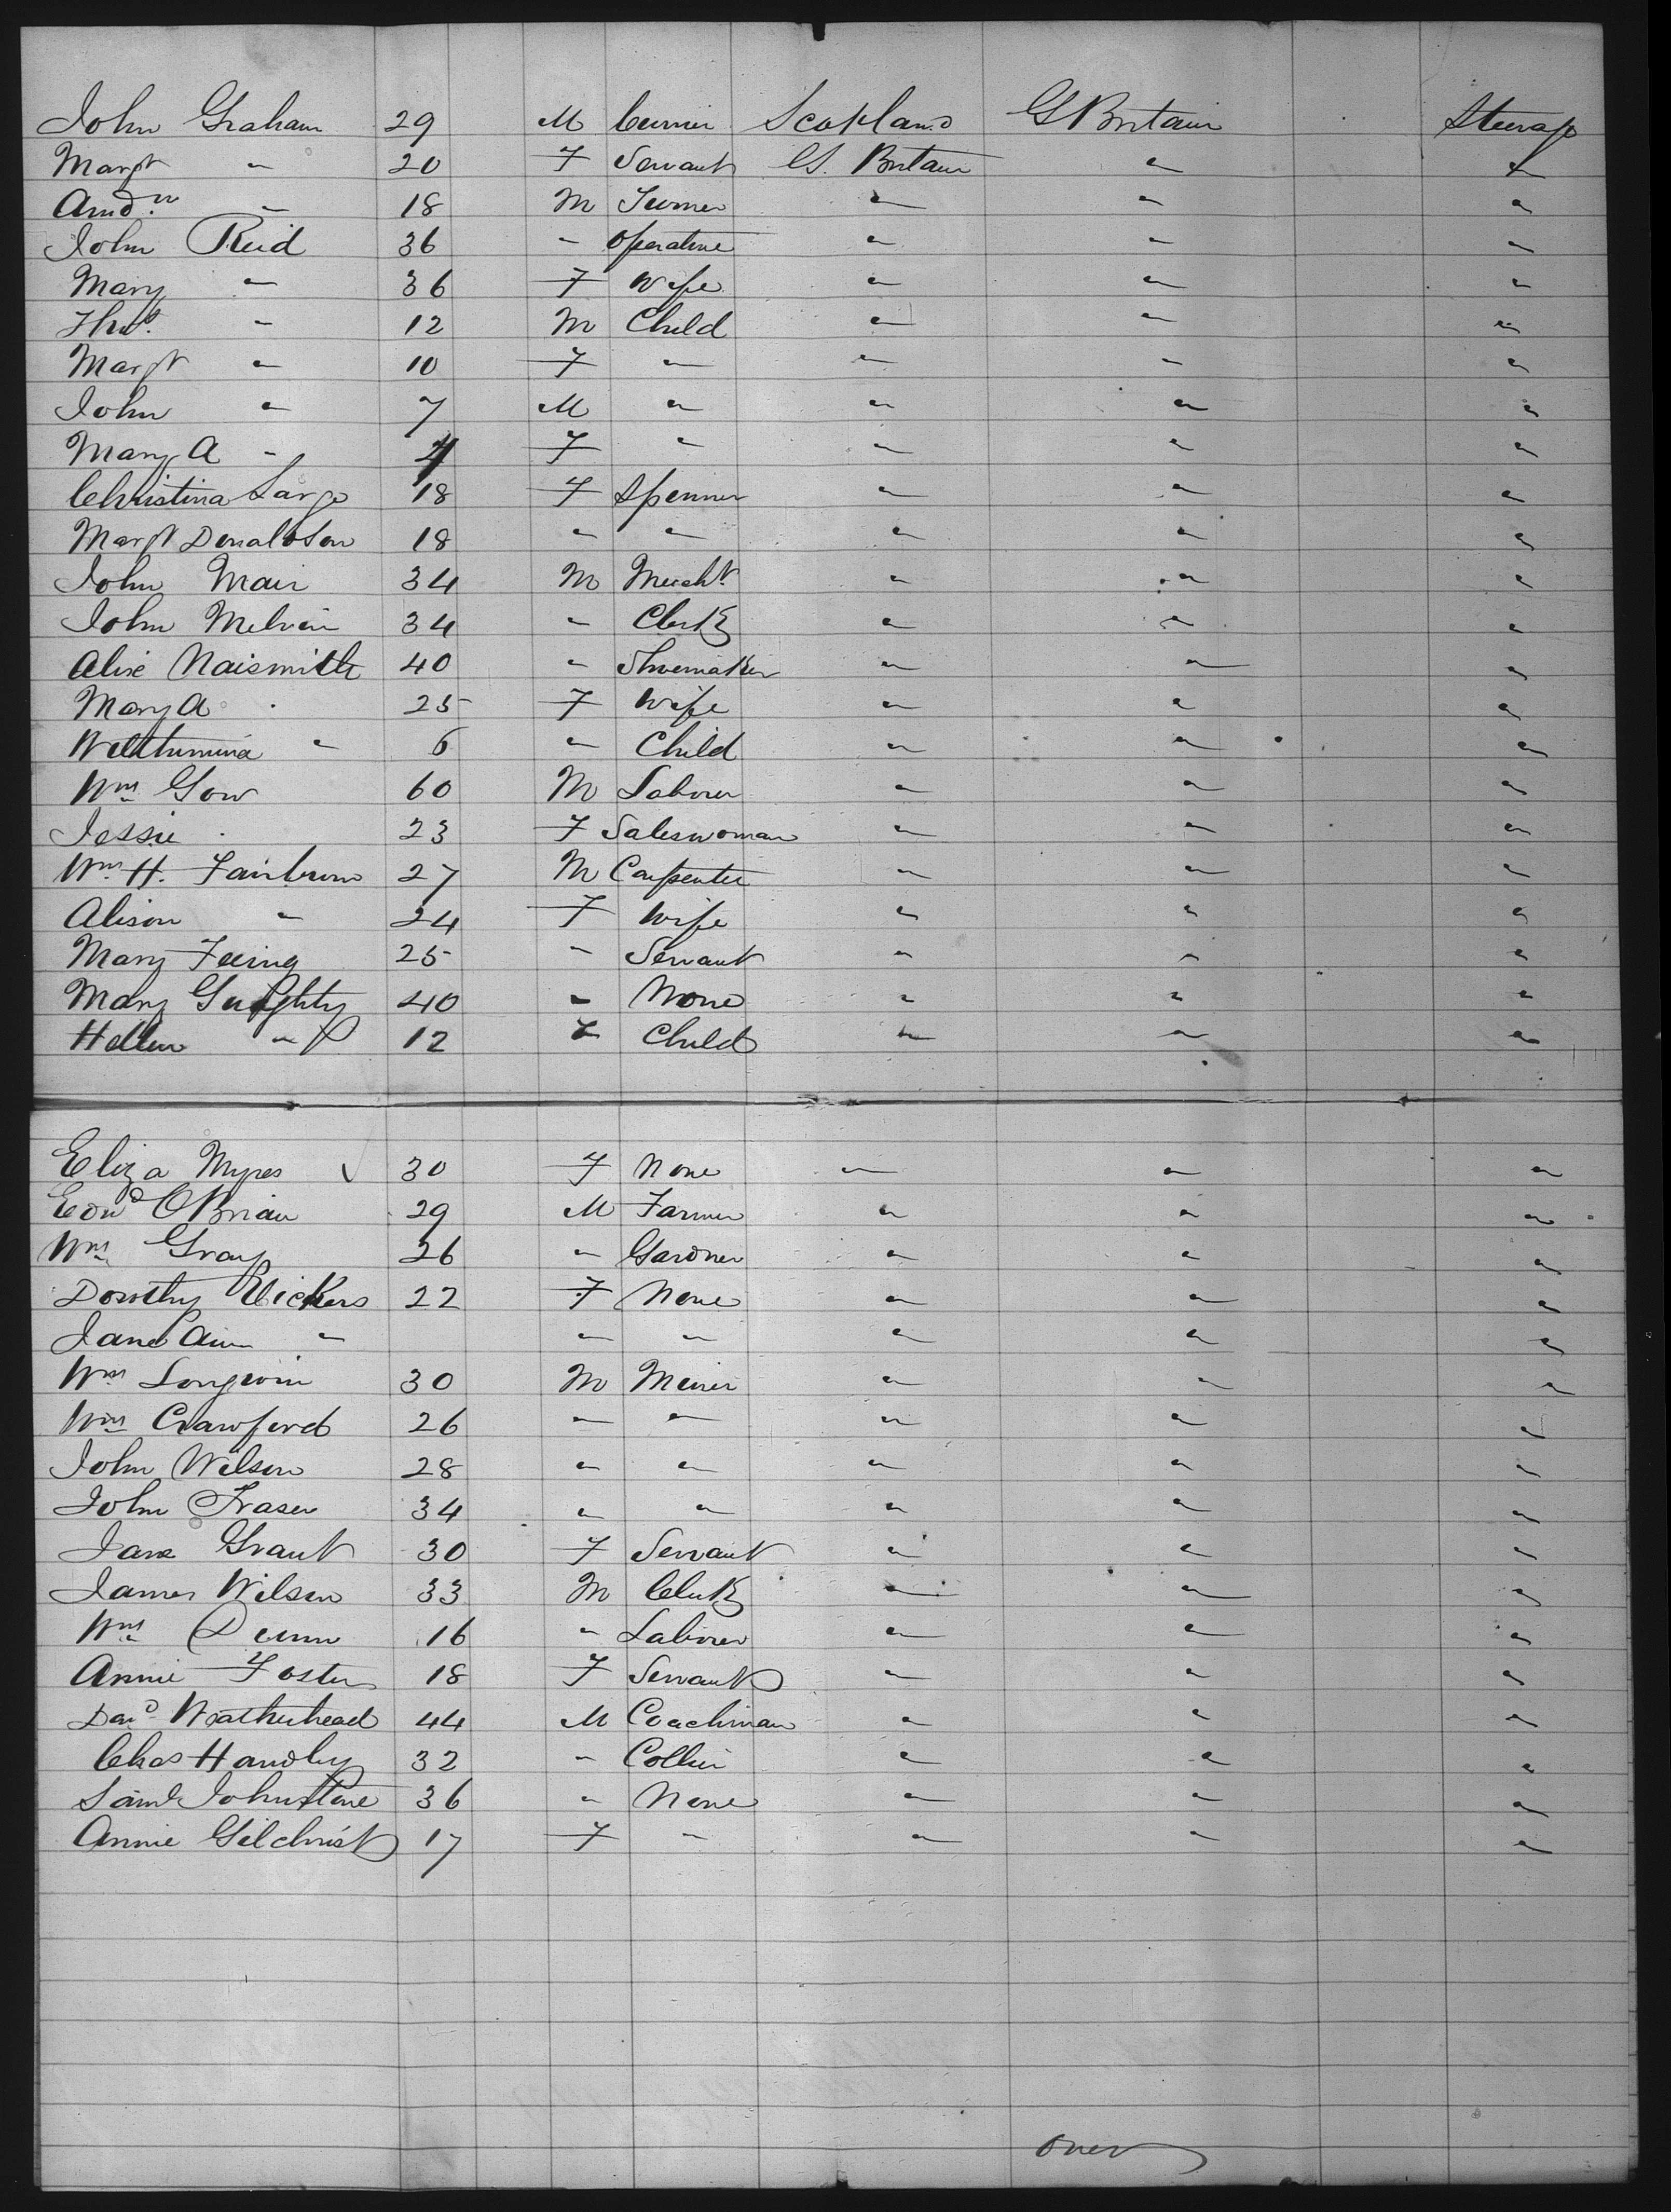 John Graham 29 M Currier Scotland G Britain Steerage
Margt " 20 F Servant G. Britain " "
Andw " 18 M Turner " " "
John Reid 36 " Operative " " "
Mary " 36 F Wife " " "
Thos " 12 M Child " " "
Margt " 10 F " " " "
John " 7 M " " " "
Mary A " 4 F " " " "
Christina Largo 18 F Spinner " " "
Margt Donaldson 18 " " " " "
John Mair 34 M Mercht " " "
John Melvin 34 " Clerk " " "
Naismith 40 " Shoemaker " " "
Mary A " 25 F Wife " " "
6 " Child " " "
Wm Gow 60 M Laborer " " "
Jessie " 23 F Saleswoman " " "
Wm H. Fairburn 27 M Carpenter " " "
Alison " 24 F Wife " " "
Mary 25 " Servant " " "
Mary 40 " None " " "
Hellen " 12 F Child " " "
Eliza Mypes 30 F None " " "
Edwd OBrian 29 M Farmer " " "
Wm Gray 26 " Gardner " " "
Dorothy Vickers 22 F None " " "
Jane Ann " " " " " "
Wm 30 M Miner " " "
Wm Crawford 26 " " " " "
John Wilson 28 " " " " "
John Fraser 34 " " " " "
Jane Grant 30 F Servant " " "
James Wilson 33 M Clerk " " "
Wm Dunn 16 " Laborer " " "
Annie Foster 18 F Servant " " "
Davd Weatherhead 44 M Coachman " " "
Chas Handley 32 " Collier " " "
Saml Johnstone 36 " None " " "
Annie Gilchrist 17 F " " " "
over